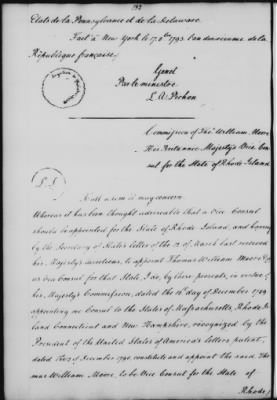 132
Etats de la Pennsylvanie et de la Delaware.
Fait à New York le 1793 l'an deuxieme de la
République française.
Genet
Par le ministre
Commission of Thos. William Moore
His Britannic Majesty's Vice Con
sul for the State of Rhode Island
L.S.
To all whom it may concern
Whereas it has been thought adviseable that a Vice Consul
should be appointed for the State of Rhode Island, and having
by the Secretary of State's letter of the of March last received
her Majesty's directions, to appoint Thomas William Moore, Esq
as Vice Consul for that State, I do, by these presents, in virtue of
his Majesty's Commission, dated the day of December 1789
appointing me Consul to the States of Massachusetts, Rhode Is
land Connecticut and New Hampshire, recognized by the
President of the United States of America's letters patent,
dated the of December 1790, constitute and appoint the said Tho
mas William Moore, to be Vice Consul for the State of
Rhode